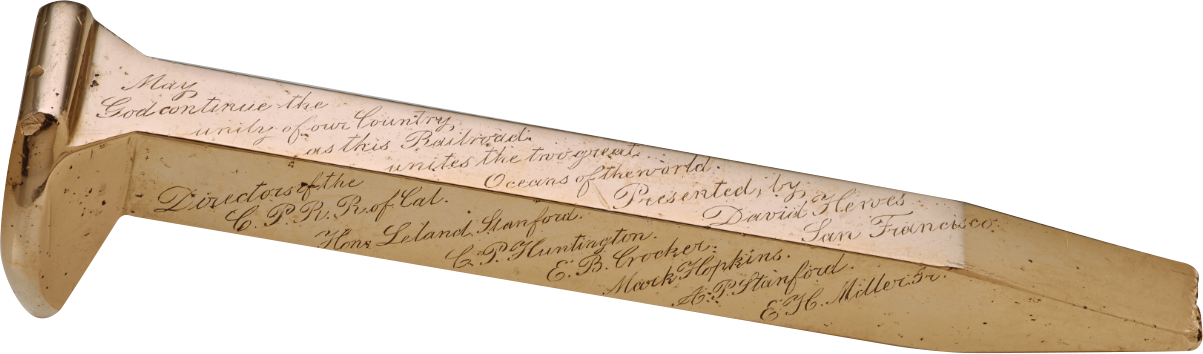 May
God continue the
unity of our Country,
as this Railroad
unites the two great
Oceans of the world.
Presented, by
David Hewes
San Francisco.
Directors of the
C. P. R. R. of Cal.
Hon. Leland Stanford.
C. P. Huntington.
E. B. Crocker.
Mark Hopkins.
A. P. Stanford.
E. H. Miller Jr.